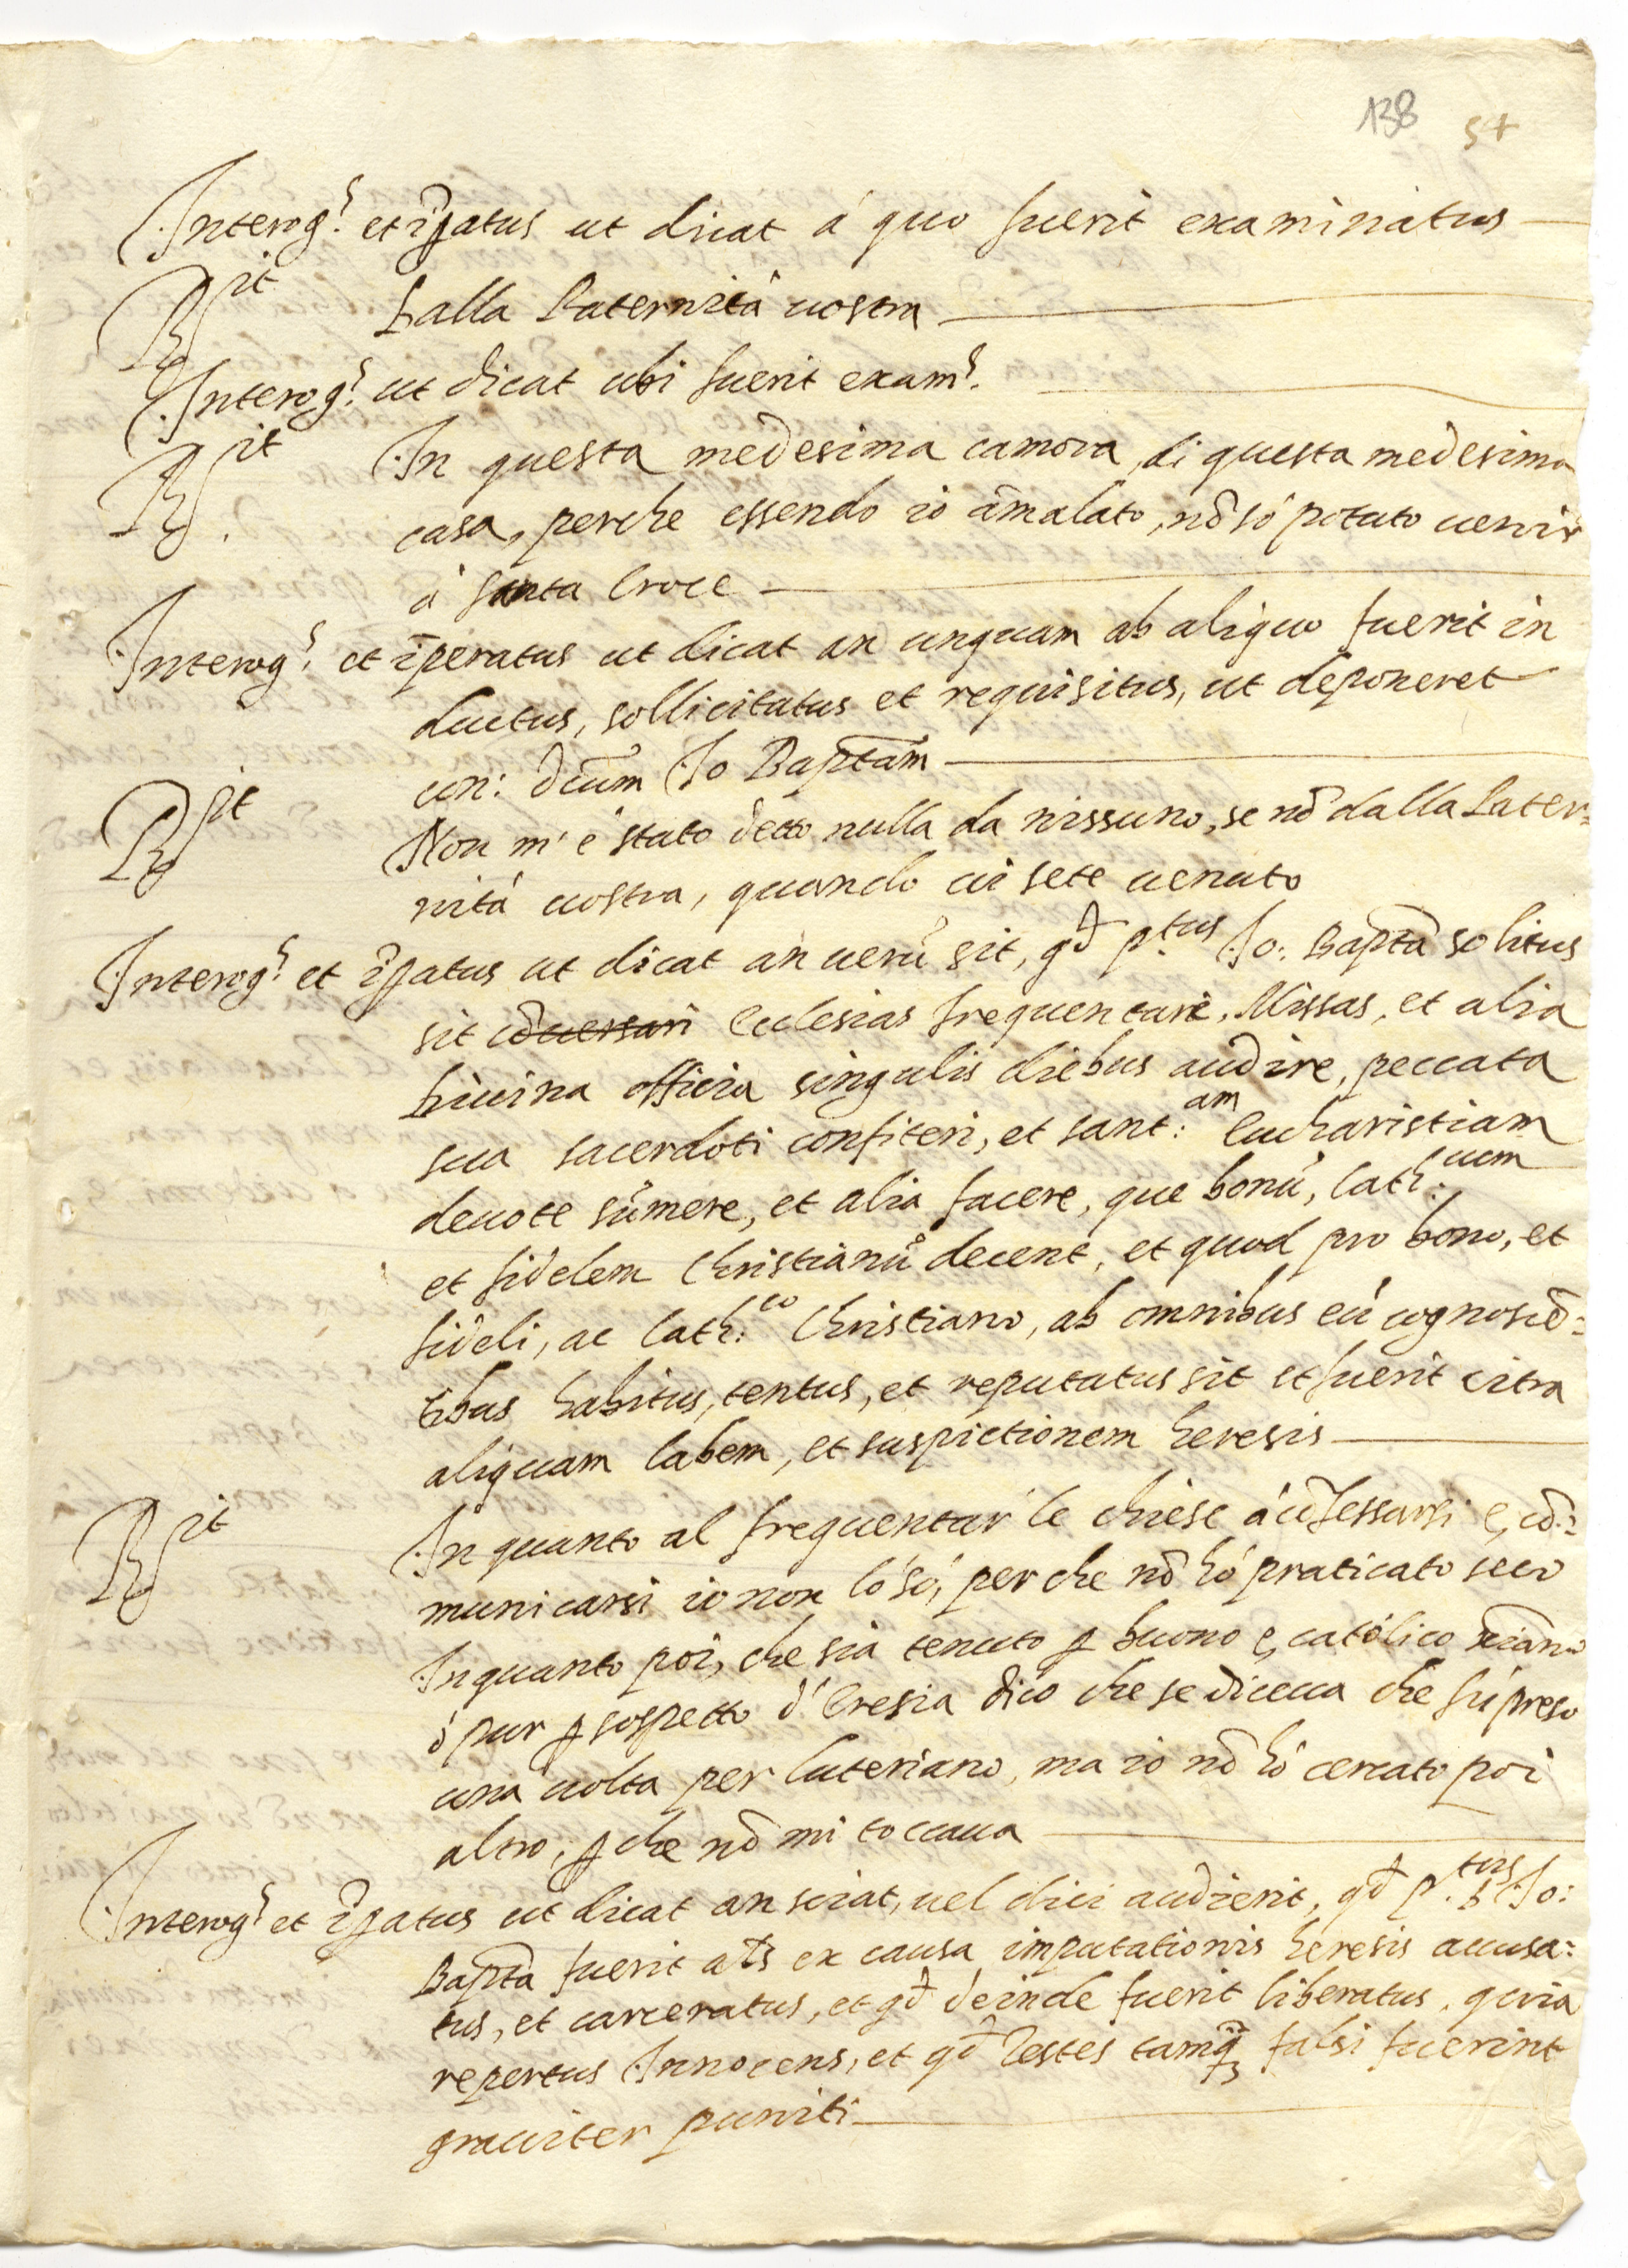 138 54
Interog.s et ip̃atus ut dicat á quo fuerit examinatus
R.it Dalla Paternità uostra
Interog.s ut dicat ubi fuerit exam.s
R.it In questa medesima camora di questa medesima
casa, perche essendo io ãmalato, nõ só potuto uenir
à Santa Croce
Interog.s et ĩperatus ut dicat an unquam ab aliquo fuerit in
ductus, sollicitatus et requisitus, ut deponeret
con: dcũm Io Baptãm
R.it Non m'è stato detto nulla da nissuno, se nõ dalla Pater=
nità uostra, quando ui sete uenuto
Interog.s et ip̃atus ut dicat an uerũ sit, qđ p.tus Io: Baptã solitus
sit cõuersari Eclesias frequentare, Missas, et alia
Diuina officia singulis diebus audire, peccata
sua sacerdoti confiteri, et sant:am Eucharistiam
deuote sũmere, et alia facere, que bonũ, Cath:cum
et fidelem Christianũ decent, et quod pro bono, et
fideli, ac Cath:co Christiano, ab omnibus eũ cognoscẽ=
tibus habitus, tentus, et reputatus sit et fuerit citra
aliquam labem, et suspictionem heresis
R.it In quanto al frequentar le chiese á cõfessarsi e, cõ=
municarsi io non ló só, perche nõ hó praticato seco
Inquanto poi, che sia tenuto ꝑ buono e, catolico xiano
ó pur ꝑ sospetto d'Eresia dico che se diceua che fú preso
una uolta per luteriano, ma io nõ hó cercato poi
altro, ꝑche nõ mi toccaua
Interog.s et ip̃atus ut dicat an sciat, uel dici audierit, qđ p.tus Io:
Baptã fuerit al̃s ex causa imputationis heresis accusa=
tus, et carceratus, et qđ deinde fuerit liberatus, quia
repertus Innocens, et qđ Testes tamq̃ falsi fuerint
grauiter puniti